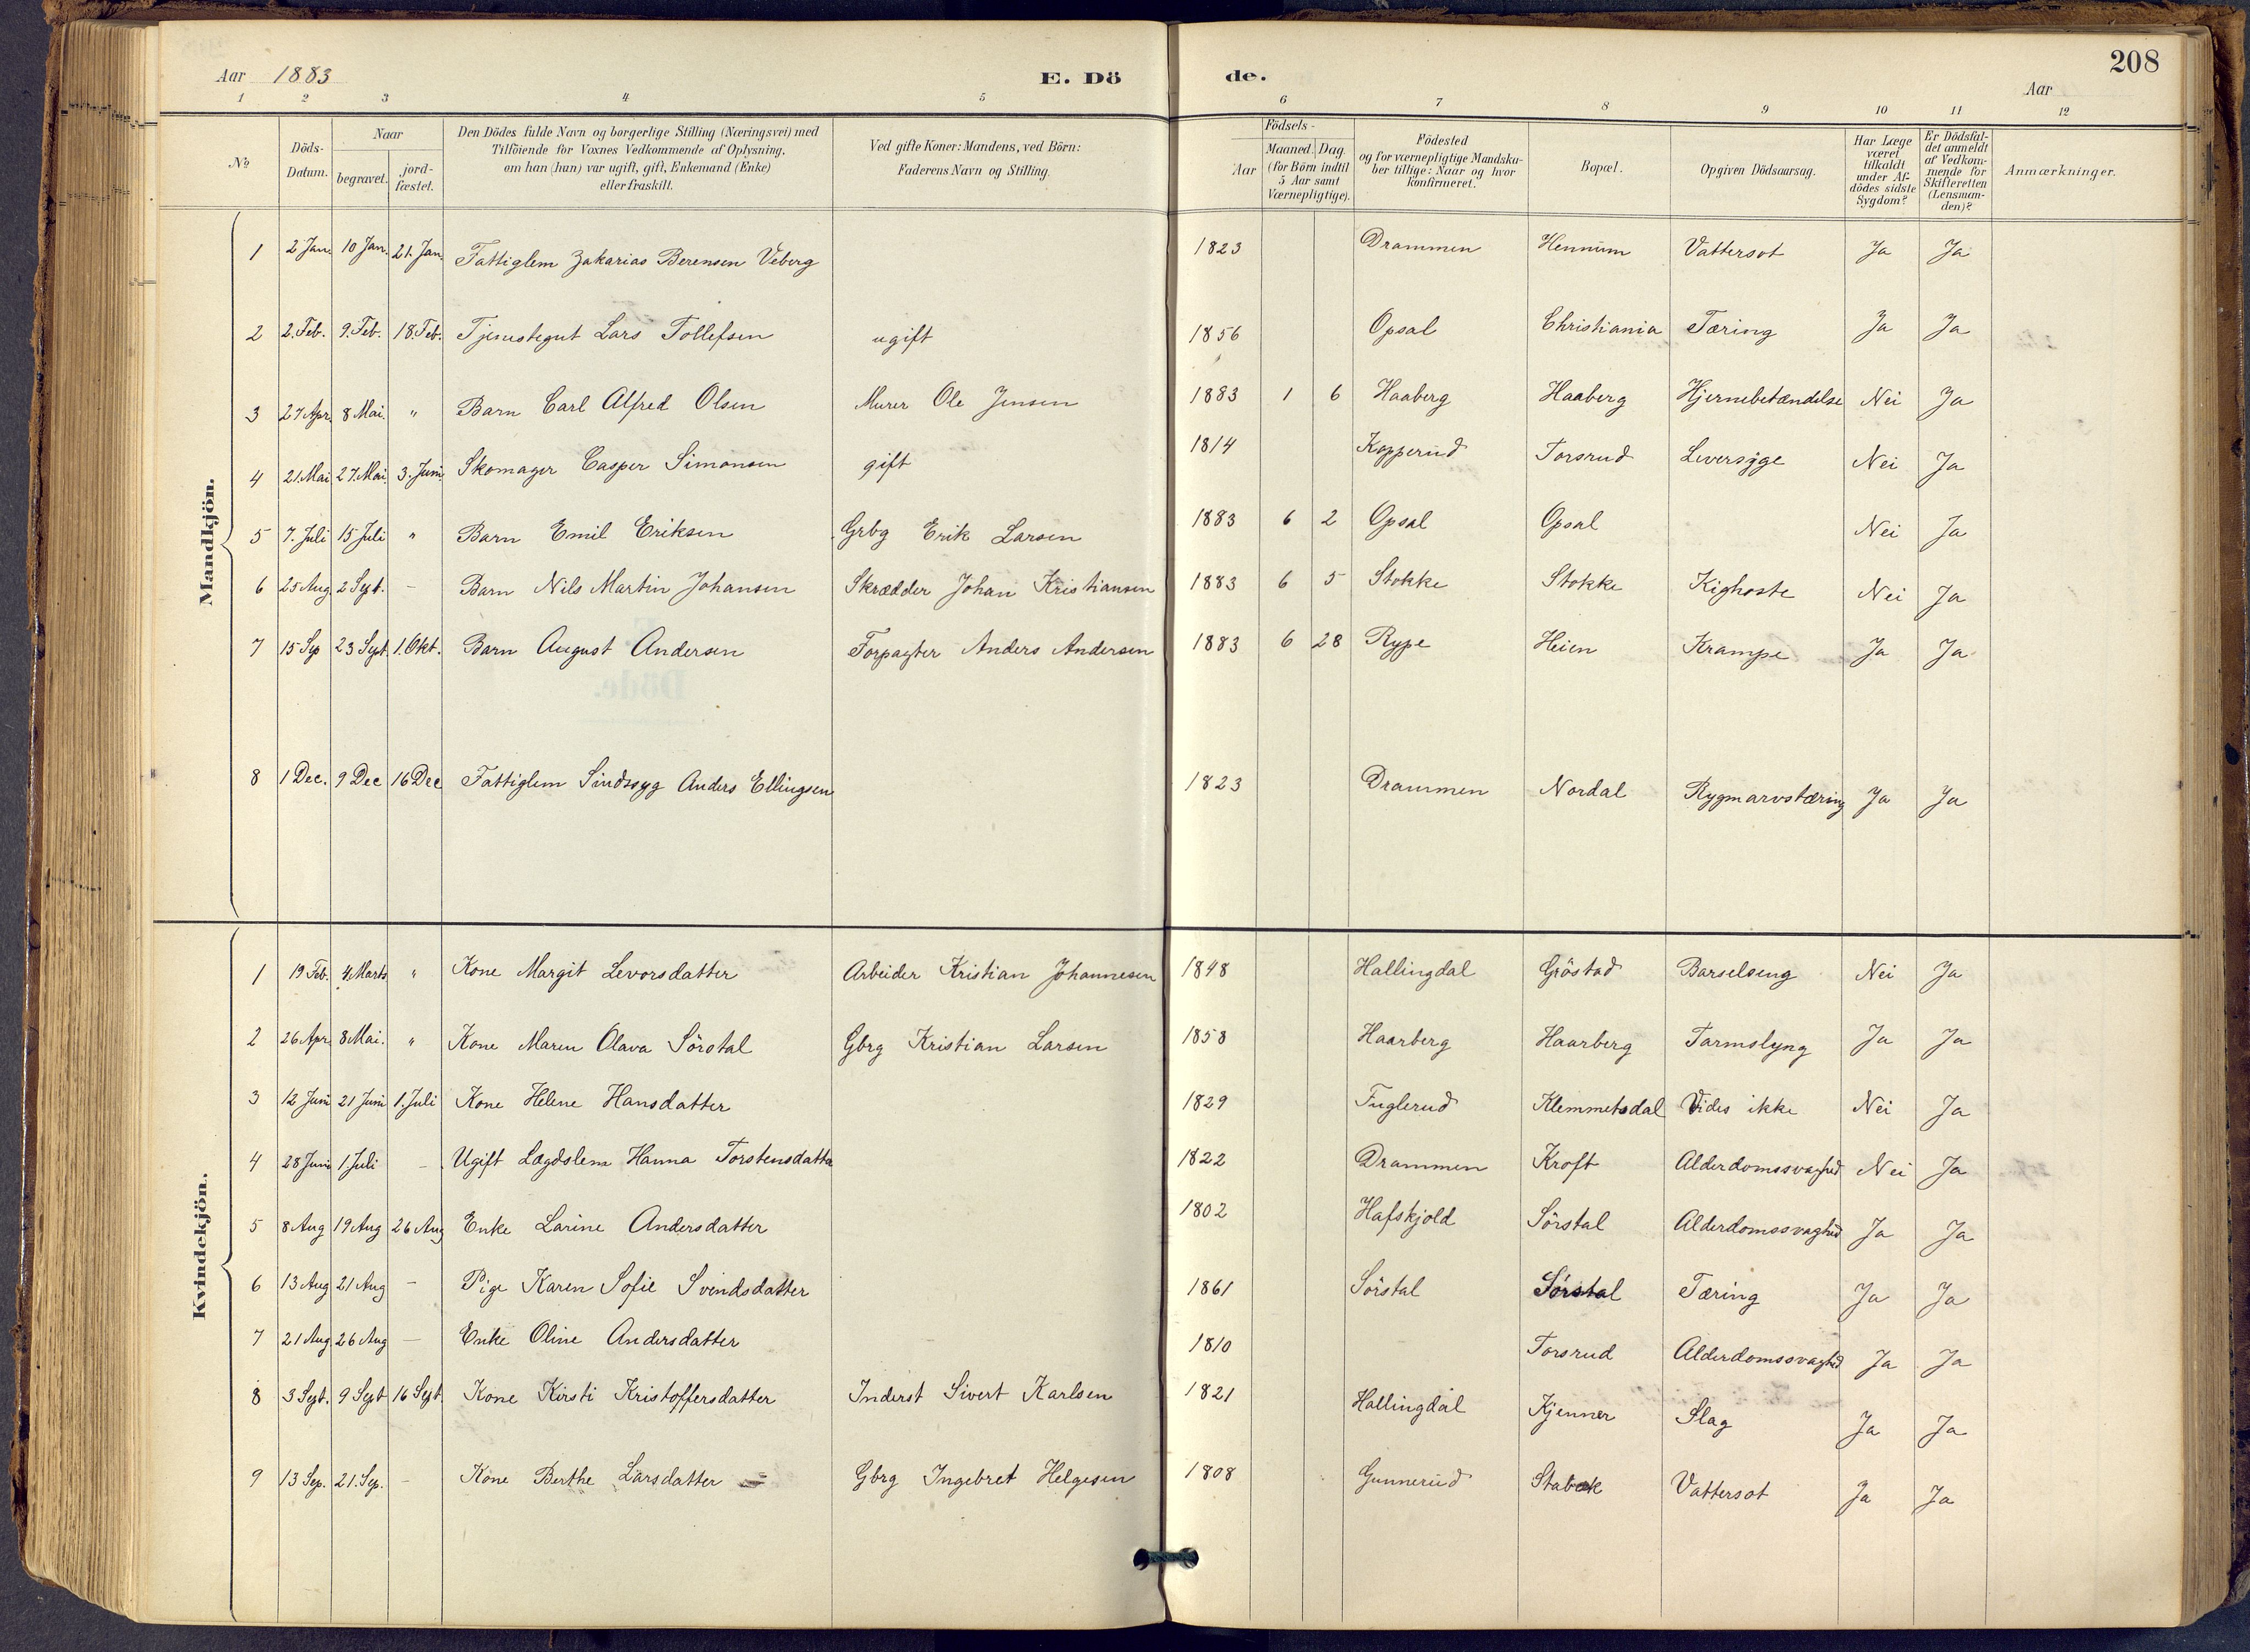 Aar 1883 E. Dö de. 208
Aar
1 2 3 4 5 6 7 8 9 10 11 12
No
Döds-Datum.
Naar
begravet.
jord-fæstet.
Den Dödes fulde Navn og borgerlige Stilling (Næringsvei) med
Tilföiende for Voxnes Vedkommende af Oplysning.
om han (hun) var ugift, gift, Enkemand (Enke)
eller fraskilt.
Ved gifte Koner: Mandens, ved Börn:
Faderens Navn og Stilling.
Födsels-
Aar
Maaned. Dag.
(for Börn indtil
5 Aar samt
Værnepligtige).
Födested
og for værnepligtige Mandska-
ber tillige: Naar og hvor
konfirmeret.
Bopæl.
Opgiven Dödsaarsag.
Har Læge
været
tilkaldt
under Af-
dödes sidste
Sygdom?
Er Dödsfal-
det anmeldt
af Vedkom-
mende for
Skifteretten
(Lensman-
den)?
Anmærkninger.
Mandkjön.
1 2 Jan. 10 Jan. 21. Jan. Fattiglem Zakarias Berensen Veberg 1823 Drammen Hennum Vattersot Ja Ja
2 2. Feb. 9. Feb. 18. Feb. Tjenestegut Lars Tollefsen ugift 1856 Opsal Christiania Tæring Ja Ja
3 27 Apr. 8 Mai. " Barn Carl Alfred Olsen Murer Ole Jensen 1883 1 6 Haaberg Haaberg Hjernebetændelse Nei Ja
4 21. Mai 27. Mai. 3. Juni Skomager Casper Simonsen gift 1814 Kopperud Torsrud Leversyge Nei Ja
5 7. Juli 15 Juli " Barn Emil Eriksen Grbg Erik Larsen 1883 6 2 Opsal Opsal Nei Ja
6 25 Aug. 2 Sept. - Barn Nils Martin Johansen Skrædder Johan Kristiansen 1883 6 5 Stokke Stokke Kighoste Nei Ja
7 15 Sep 23 Sept. 1. Okt. Barn August Andersen Forpagter Anders Andersen 1883 6 28 Rype Heien Krampe Ja Ja
8 1 Dec. 9 Dec 16 Dec Fattiglem Sindssyg Anders Ellingsen 1823 Drammen Nordal Rygmarvstæring Ja Ja
Kvindekjön.
1 19 Feb. 4 Marts " Kone Margit Levorsdatter Arbeider Kristian Johannesen 1848 Hallingdal Gröstad Barselseng Nei Ja
2 26 Apr. 8 Mai. " Kone Maren Olava Sörstal Gbrg Kristian Larsen 1858 Haarberg Haarberg Tarmslyng Ja Ja
3 12 Juni 21 Juni 1. Juli Kone Helene Hansdatter 1829 Fuglerud Klemmetsdal Vides ikke Nei Ja
4 28 Juni 1. Juli - Ugift Lægdslem Hanna Torstensdatter 1822 Drammen Kroft Alderdomssvaghed Nei Ja
5 8 Aug 19 Aug 26 Aug Enke Larine Andersdatter 1802 Hafskjold Sörstal Alderdomssvaghed Ja Ja
6 13 Aug 21 Aug - Pige Karen Sofie Svendsdatter 1861 Sörstal Sörstal Tæring Ja Ja
7 21 Aug. 26 Aug - Enke Oline Andersdatter 1810 Torsrud Alderdomssvaghed Ja Ja
8 3 Sept. 9 Sept 16 Sept. Kone Kirsti Kristoffersdatter Inderst Sivert Karlsen 1821 Hallingdal Kjenner Slag Ja Ja
9 13 Sep. 21. Sep. - Kone Berthe Larsdatter Gbrg Ingebret Helgesen 1808 Gunnerud Stabæk Vattersot Ja Ja